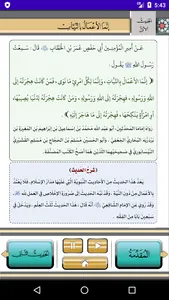 5:43
الحديث
الأول
إنما الأعمال بالنيات
عَنْ أَمِيرِ الْمُؤْمِنِينَ أَبِي حَفْصٍ عُمَرَ بْنِ الْخَطَّابِ قَالَ: سَمِعْتُ
رَسُولَ اللهِ ﷺ يَقُولُ:
إِنَّمَا الْأَعْمَالُ بِالنِّيَّاتِ، وَإِنَّمَا لِكُلِّ امْرِئٍ مَا نَوَى، فَمَنْ كَانَتْ هِجْرَتُهُ إِلَى
اللهِ وَرَسُولِهِ، فَهِجْرَتُهُ إِلَى اللهِ وَرَسُولِهِ، وَمَنْ كَانَتْ هِجْرَتُهُ لِدُنْيَا
فَهِجْرَتُهُ إِلَى مَا هَاجَرَ إِلَيْهِ
رواه إماما المحدثين: أبو عبد الله محمد بن إسماعيل بن إبراهيم بن المغيرة بن
بردزبه البخاري، وأبو الحسين مسلم بن الحجاج بن مسلم القشيري
النيسابوري في صحيحيهما اللذين هما أصح الكتب المصنفة.
(شرح الحديث)
يعد هذا الحديث من الأحاديث النبوية التي عليها مدار الإسلام، فلا يخلو
سبعين بابا من الفقه.
الحديث الثاني
المقدمة